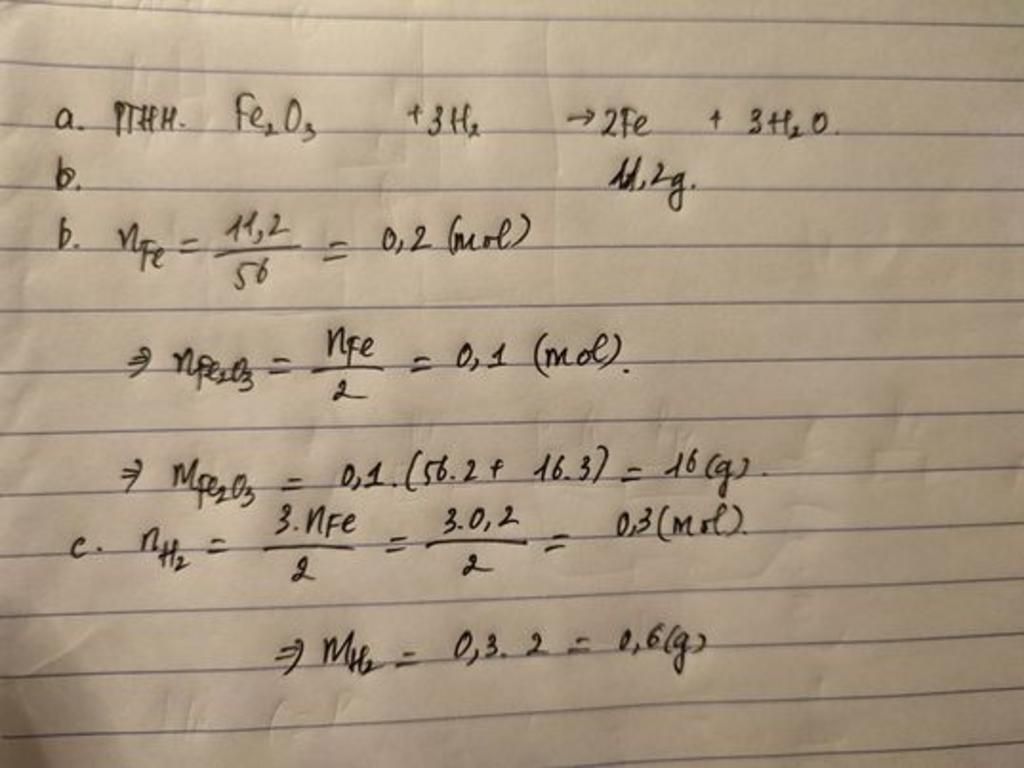 a. PTHH. Fe₂O₃ + 3H₂ → 2Fe + 3H₂O.
b. 11,2g.
b. nFe = 11,2/56 = 0,2 (mol)
⇒ nFe₂O₃ = nFe/2 = 0,1 (mol).
⇒ mFe₂O₃ = 0,1.(56.2 + 16.3) = 16(g).
c. nH₂ = 3.nFe/2 = 3.0,2/2 = 0,3(mol).
⇒ mH₂ = 0,3. 2 = 0,6(g)